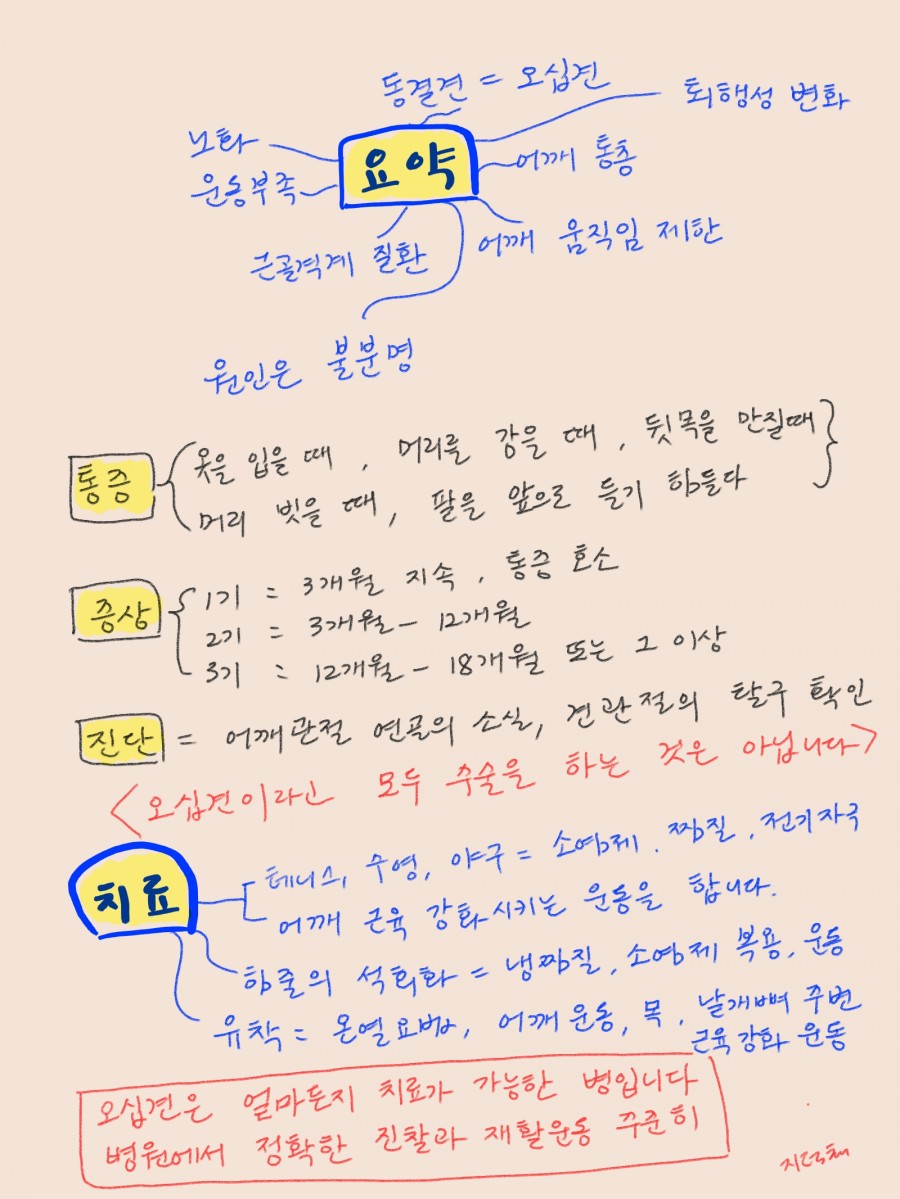 동결견 = 오십견
퇴행성 변화
노화
요약
어깨 통층
운동부족
어깨 움직임 제한
근골격계 질환
원인은 불분명
통증
옷을 입을 때, 머리를 감을 때, 뒷목을 만질때
머리 빗을 때, 팔을 앞으로 들기 힘들다
증상
1기 = 3개월 지속, 통증 호소
2기 = 3개월 - 12개월
3기 = 12개월 - 18개월 또는 그 이상
진단 = 어깨관절 연골의 소실, 견관절의 탈구 확인
<오십견이라고 모두 수술을 하는 것은 아닙니다>
치료
테니스, 수영, 야구 = 소염제, 찜질, 전기자극
어깨 근육 강화시키는 운동을 합니다.
힘줄의 석회화 = 냉찜질, 소염제 복용, 운동
유착 = 온열요법, 어깨운동, 목, 날개뼈 주변
근육강화 운동
오십견은 얼마든지 치료가 가능한 병입니다
병원에서 정확한 진찰과 재활운동 꾸준히